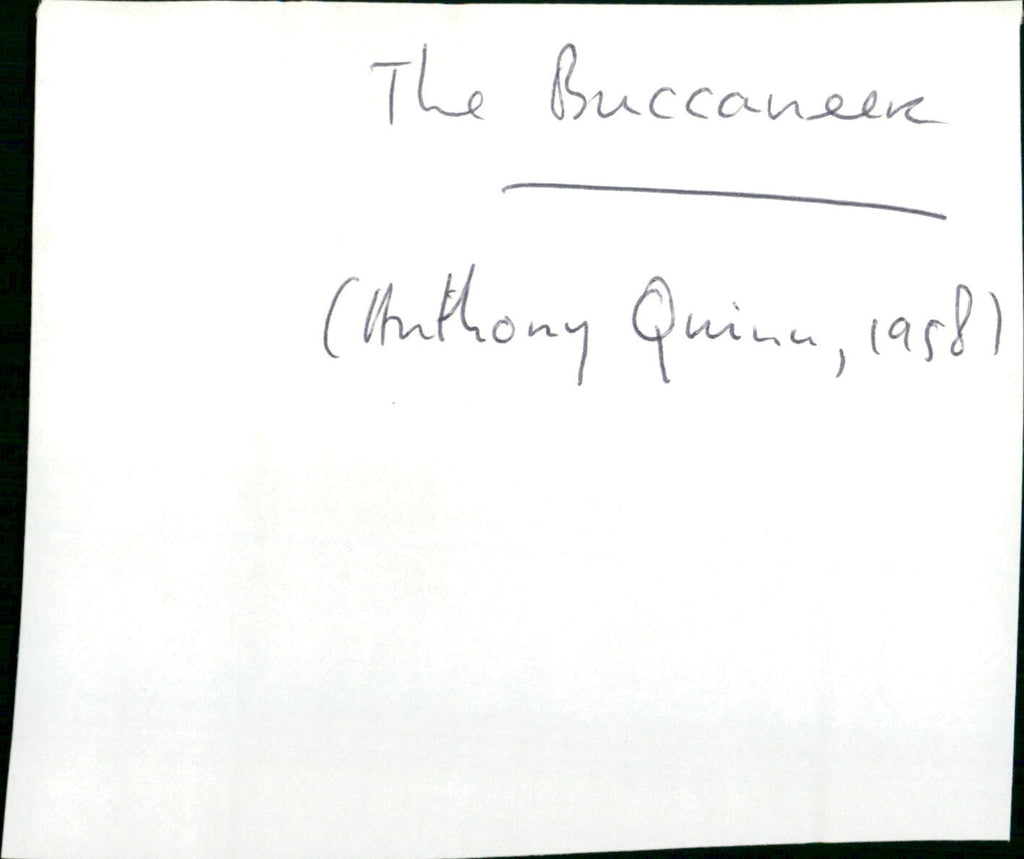 The Buccaneer
(Anthony Quinn, 1958)